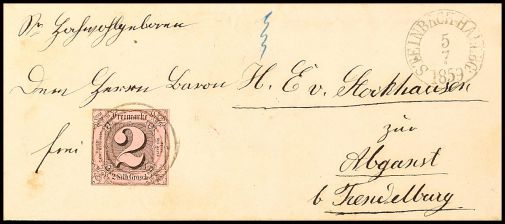 Sr Hochwohlgeboren
STEINBACH-HALLBG.
5
7
1859
Dem Herrn Baron H. E v. Stockhausen
zu
frei
Freimarke
2
2 Silb. Grosch.
Abgunst
b Trendelburg.